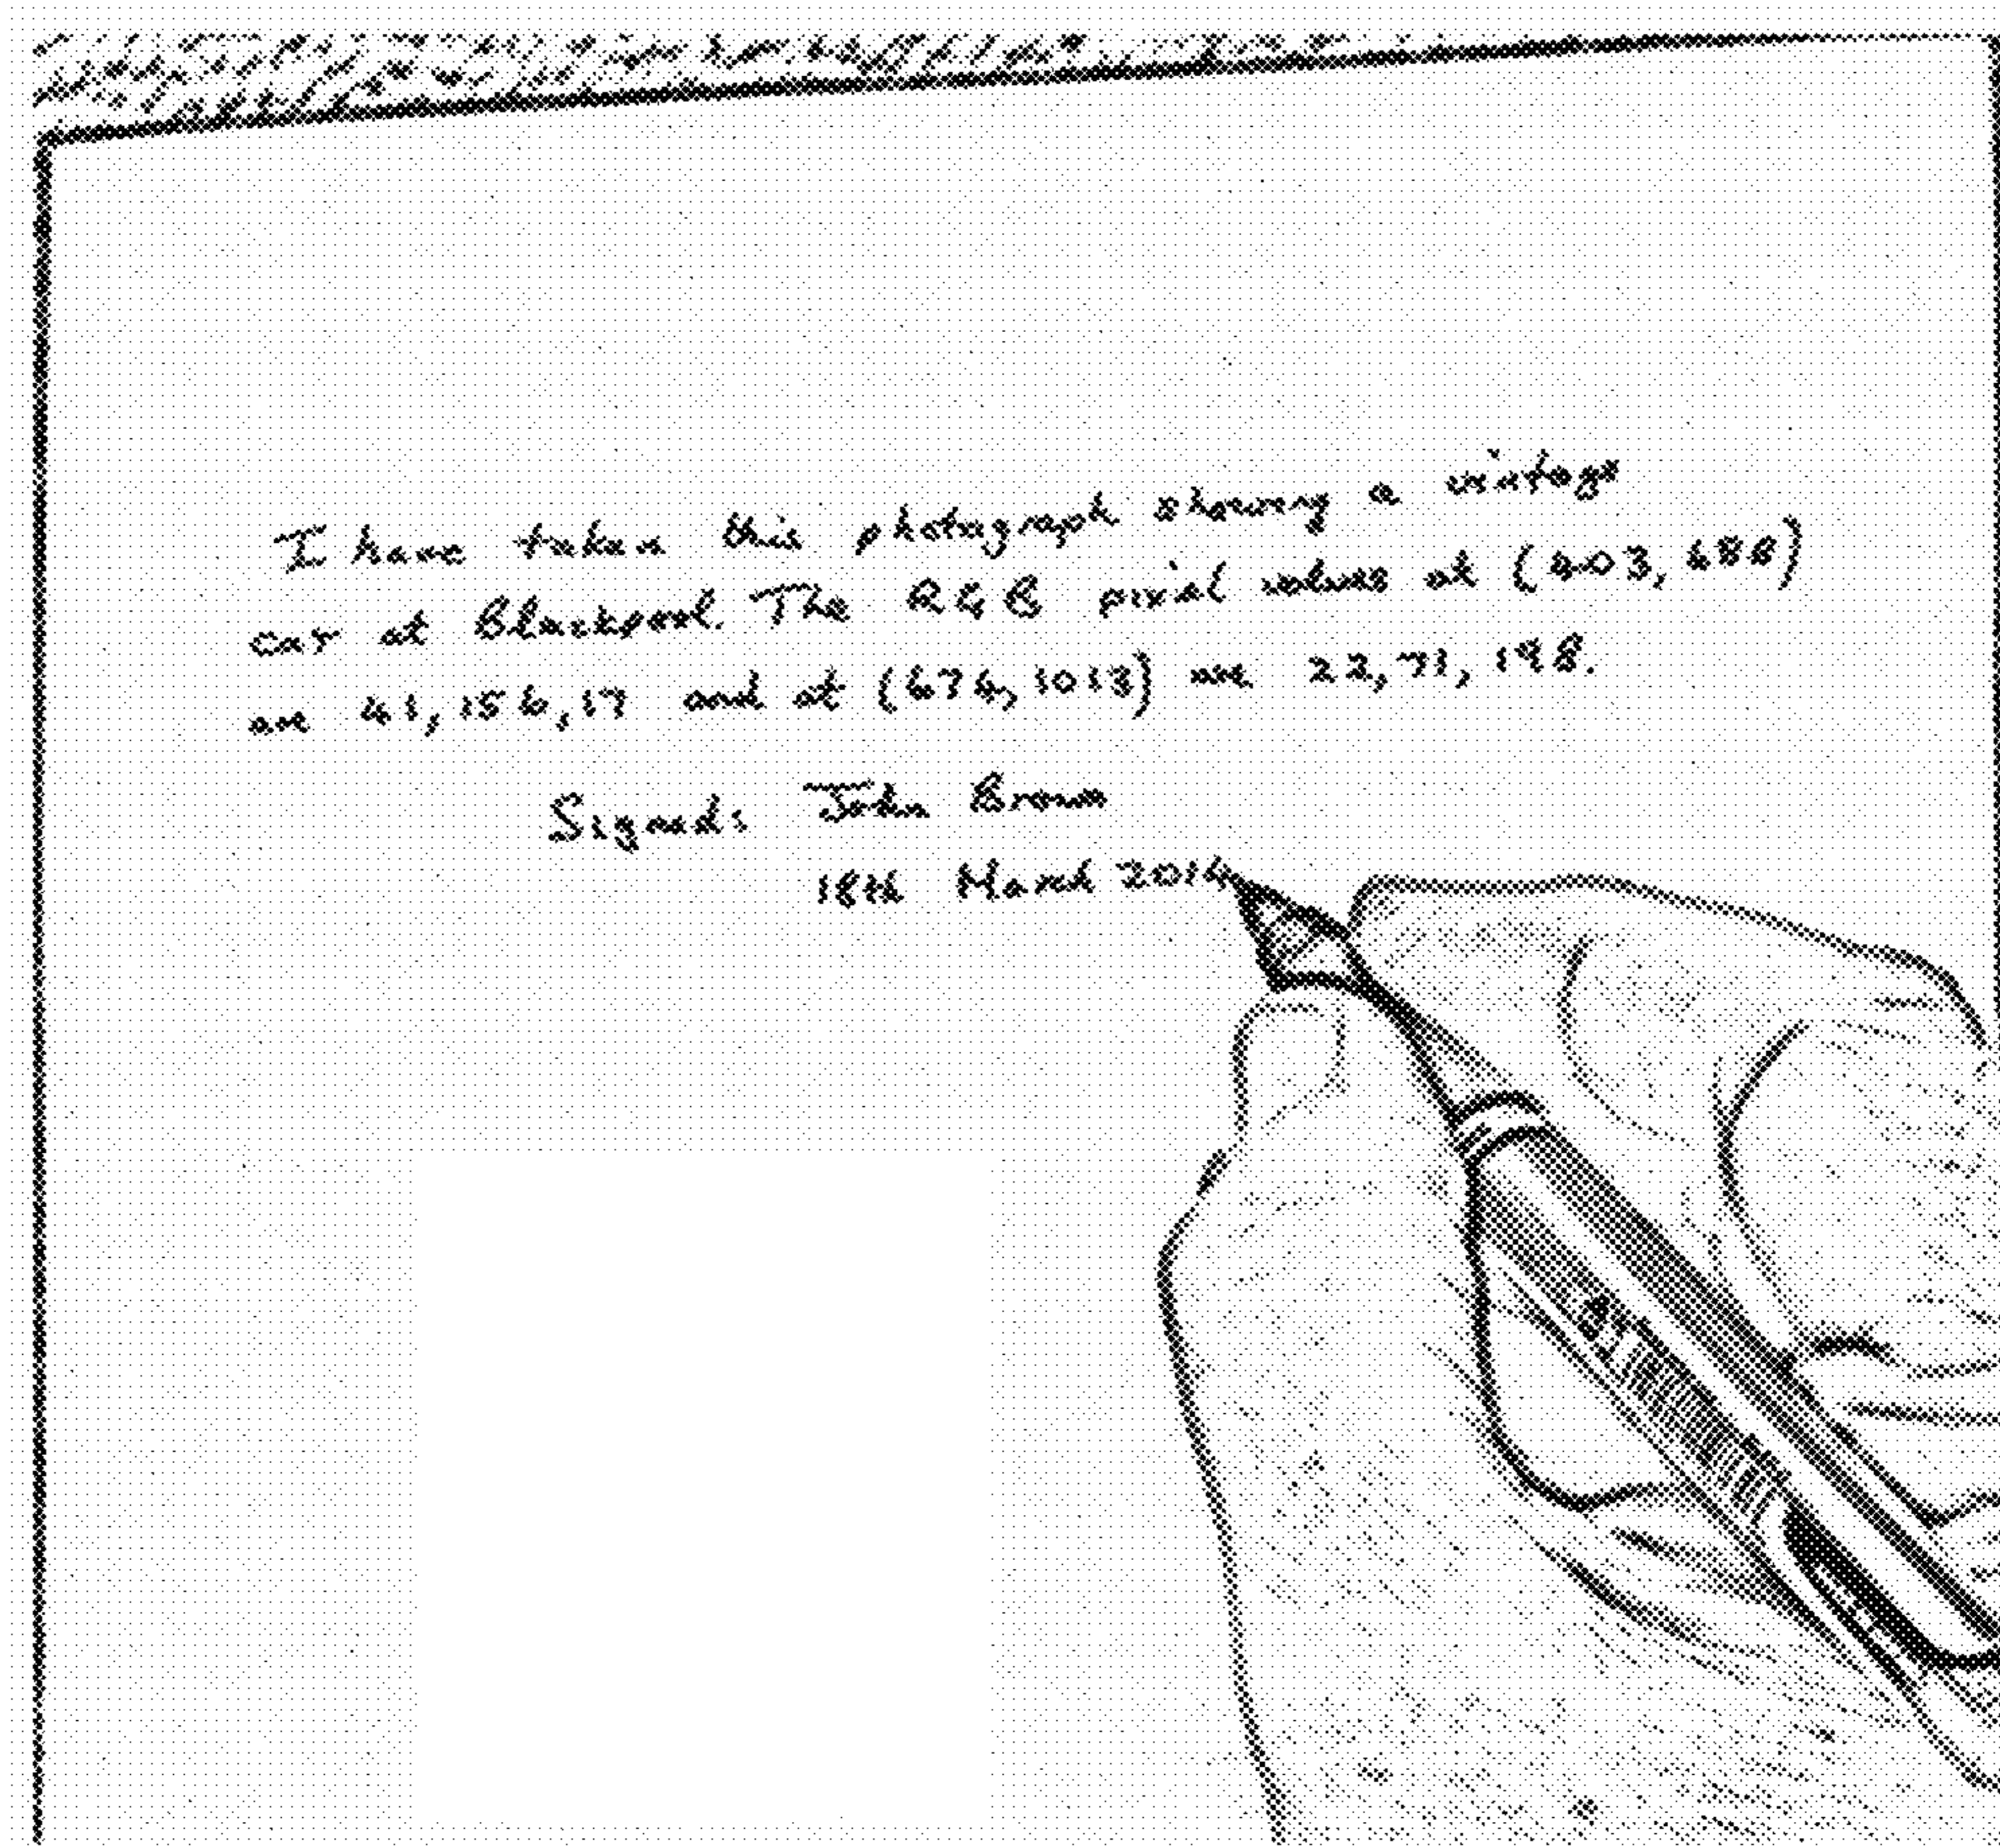 I have taken this photograph showing a vintage
car at Blackpool. The RGB pixel values at (403, 688)
are 41, 156, 17 and at (674, 1013) are 22, 71, 198.
Signed: John Brown
18th March 2014